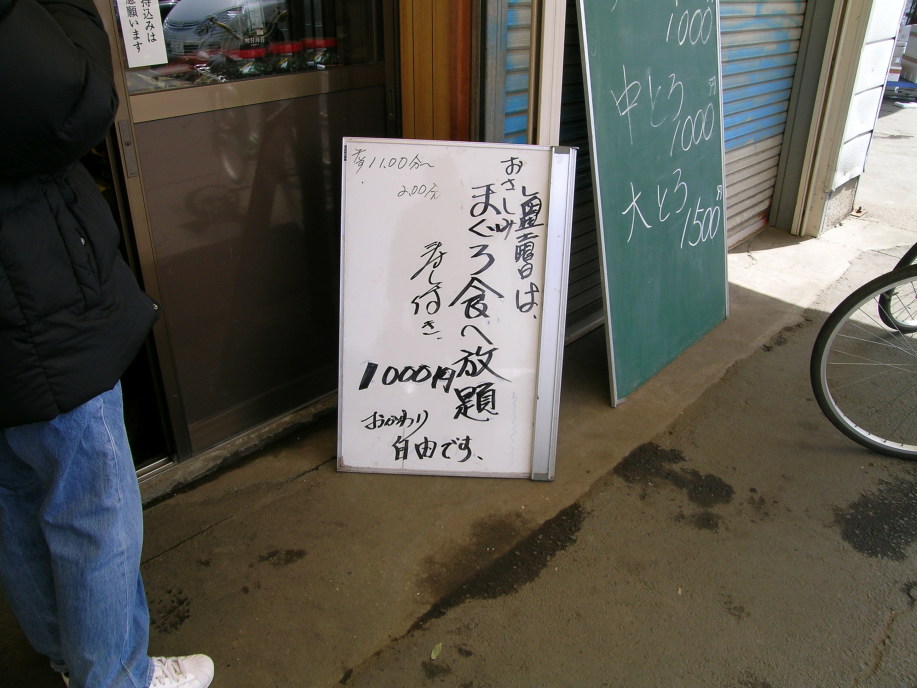 込みは
願います
11.00分〜
200分
土曜日は、
おさしみ
まぐろ食べ放題
寿し付き.
1000円
おかわり
自由です、
1000
中とろ
1000円
大とろ
1500円